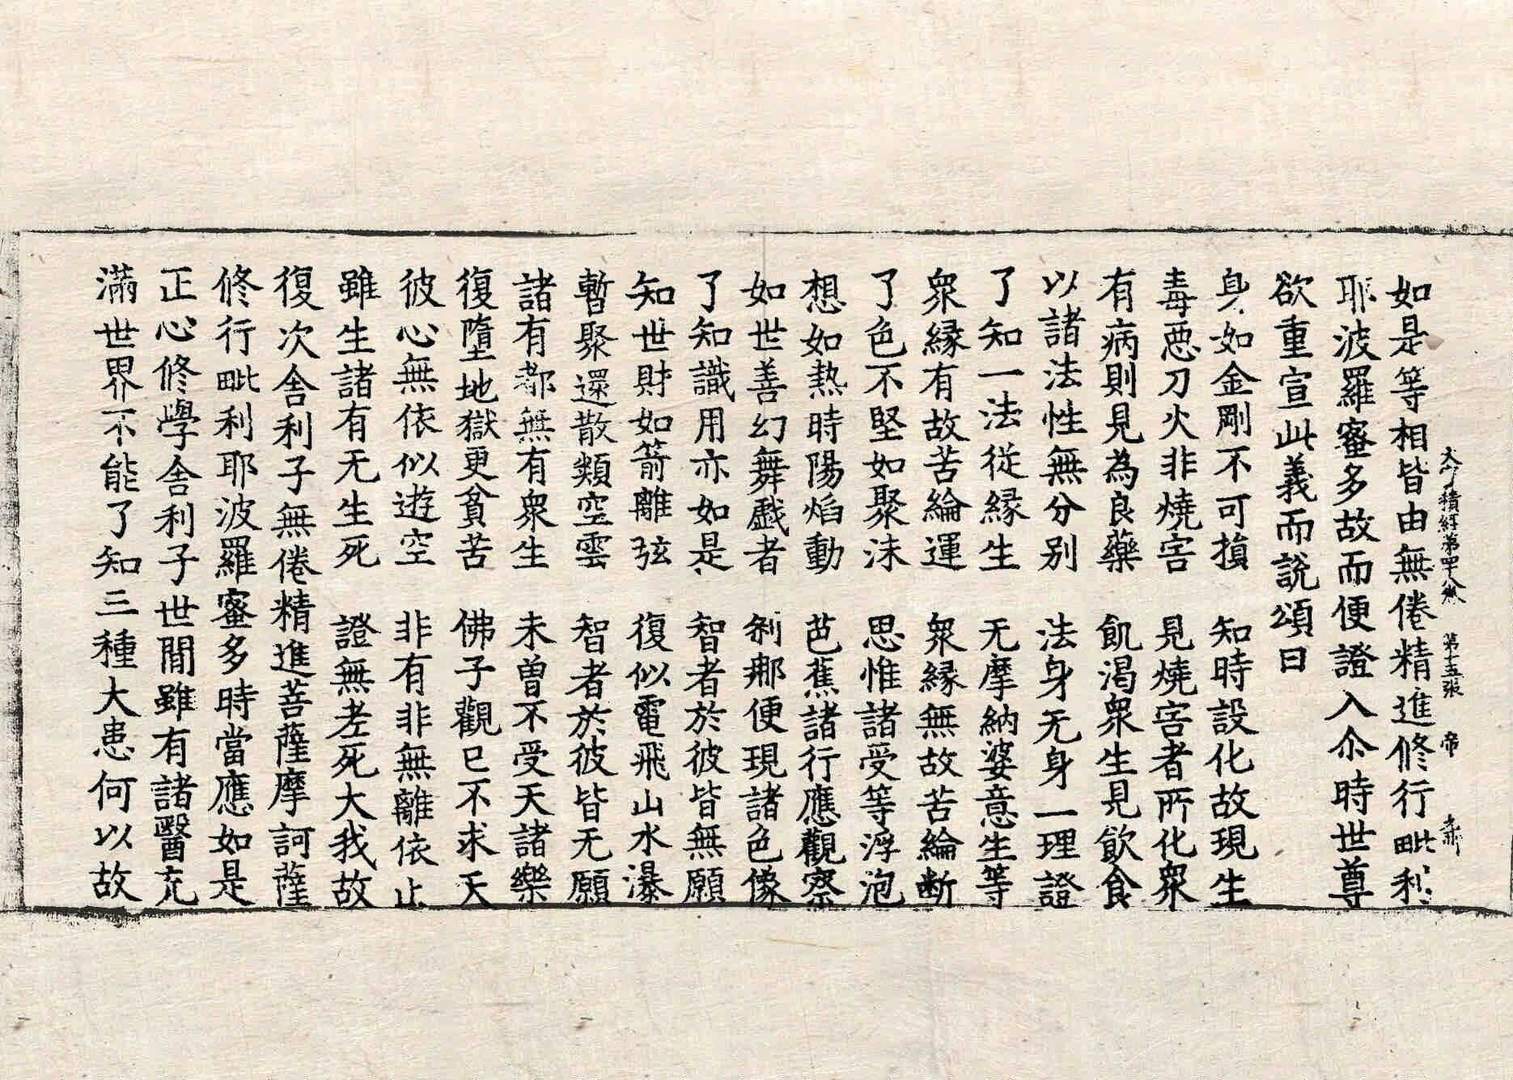 大寶積經第四十八卷　第十五張　帝
如是等相皆由無倦精進修行毗利
耶波羅蜜多故而便證入尒時世尊
欲重宣此義而說頌曰
身如金剛不可損　知時設化故現生
毒惡刀火非燒害　見燒害者所化衆
有病則見為良藥　飢渴衆生見飲食
以諸法性無分別　法身无身一理證
了知一法從緣生　无摩納婆意生等
衆緣有故苦綸運　衆緣無故苦綸斷
了色不堅如聚沫　思惟諸受等浮泡
想如熱時陽焰動　芭蕉諸行應觀察
如世善幻舞戲者　剎那便現諸色像
了知識用亦如是　智者於彼皆無願
知世財如箭離弦　復似電飛山水瀑
暫聚還散類空雲　智者於彼皆无願
諸有都無有衆生　未曾不受天諸樂
復墮地獄更貧苦　佛子觀已不求天
彼心無依似遊空　非有非無離依止
雖生諸有无生死　證無老死大我故
復次舍利子無倦精進菩薩摩訶薩
修行毗利耶波羅蜜多時當應如是
正心修學舍利子世間雖有諸醫充
滿世界不能了知三種大患何以故